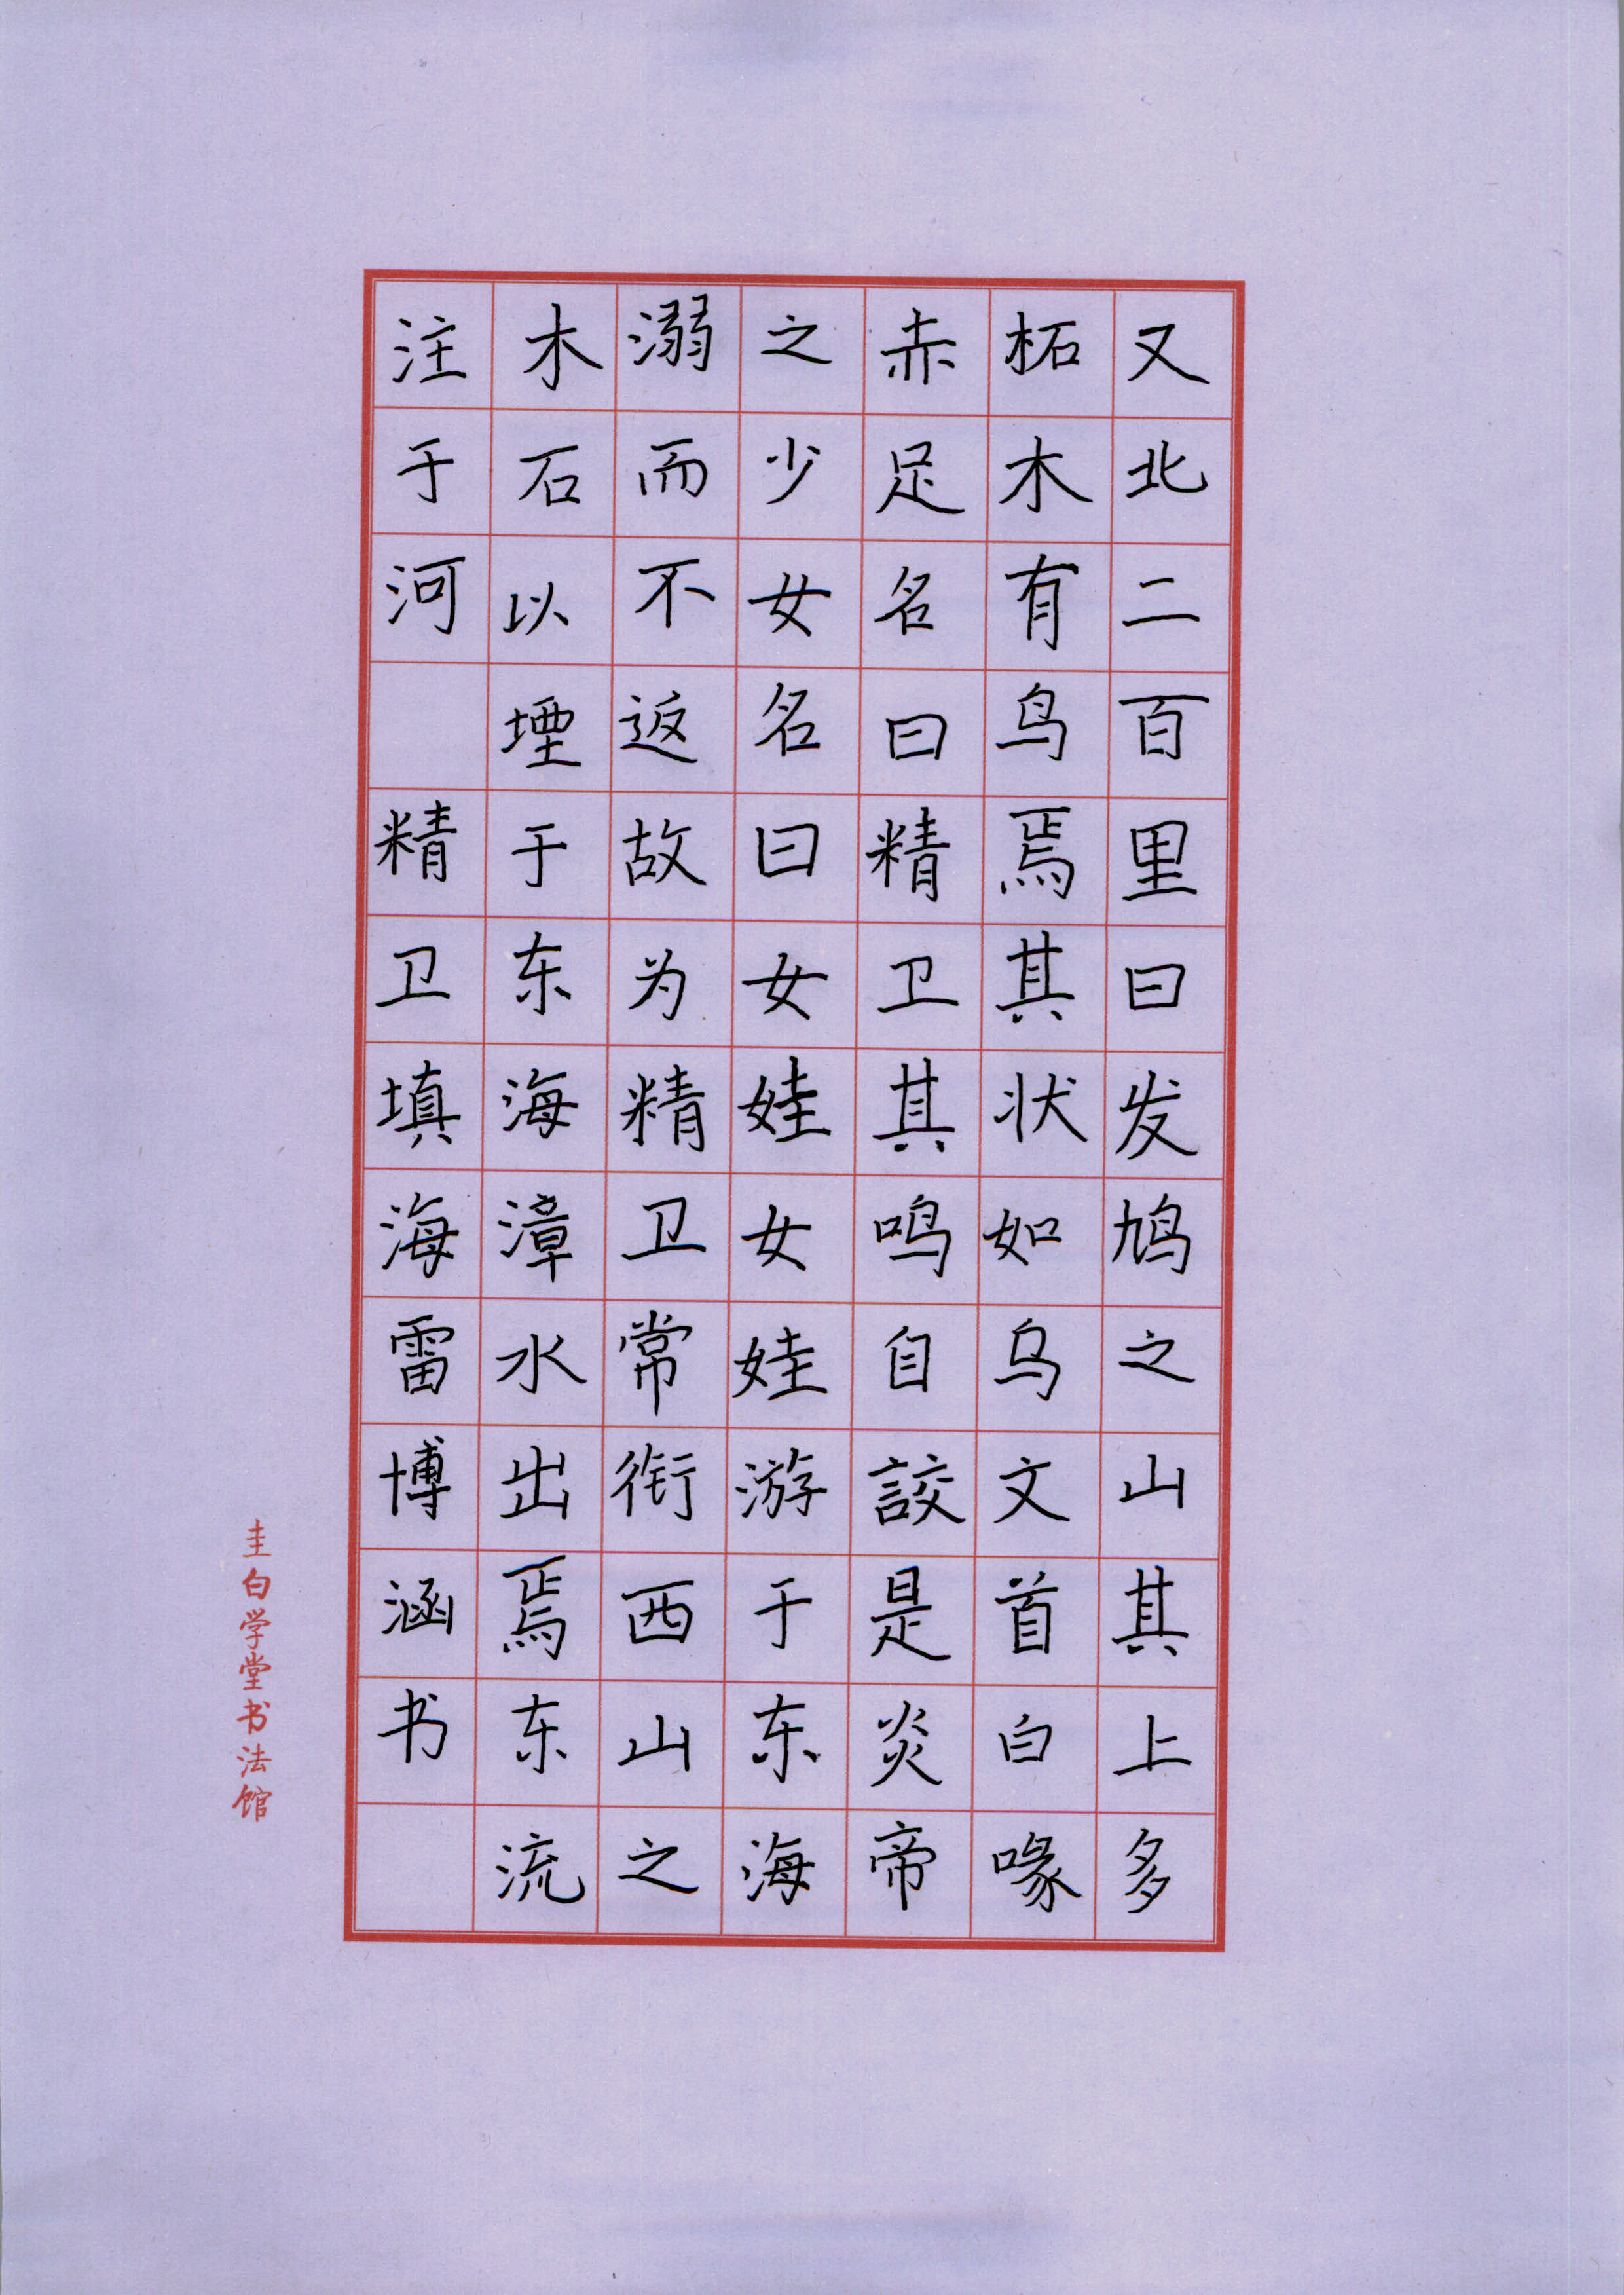 又北二百里曰发鸠之山其上多
柘木有鸟焉其状如乌文首白喙
赤足名曰精卫其鸣自詨是炎帝
之少女名曰女娃女娃游于东海
溺而不返故为精卫常衔西山之
木石以堙于东海漳水出焉东流
注于河 精卫填海雷博涵书
圭白学堂书法馆